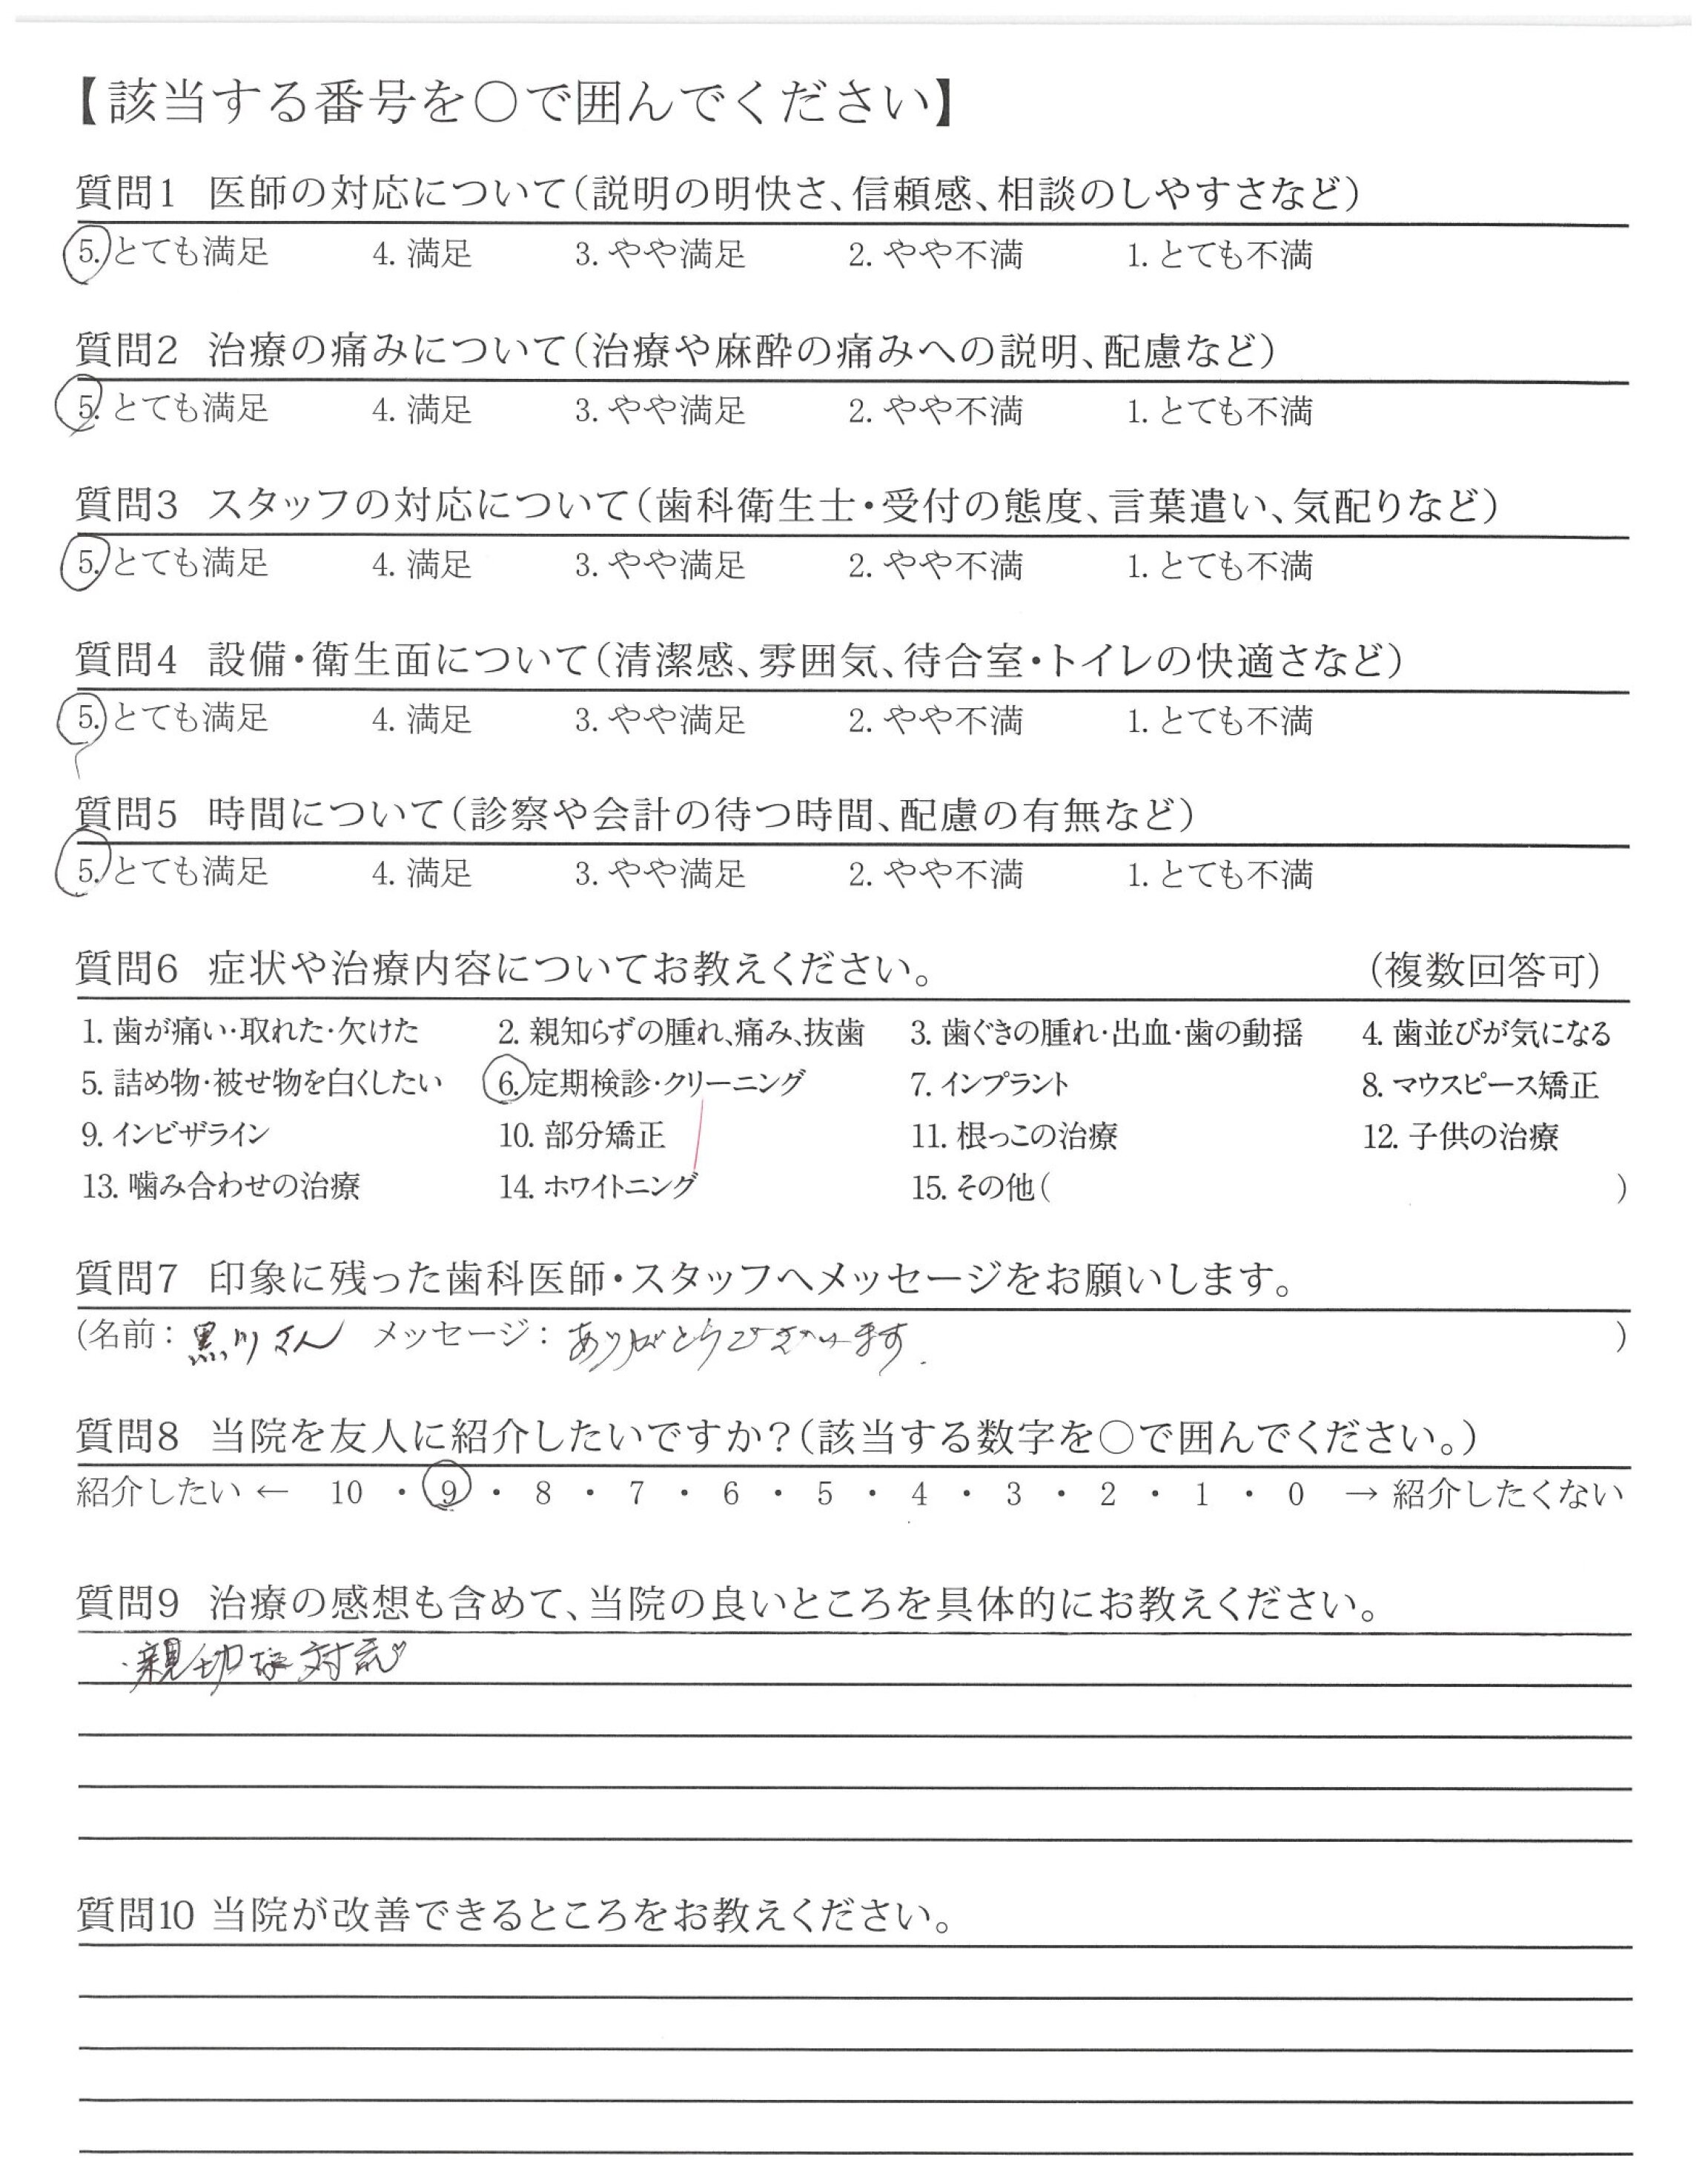 【該当する番号を○で囲んでください】
質問1 医師の対応について(説明の明快さ、信頼感、相談のしやすさなど)
5. とても満足 4. 満足 3. やや満足 2. やや不満 1. とても不満
質問2 治療の痛みについて(治療や麻酔の痛みへの説明、配慮など)
5. とても満足 4. 満足 3. やや満足 2. やや不満 1. とても不満
質問3 スタッフの対応について(歯科衛生士・受付の態度、言葉遣い、気配りなど)
5. とても満足 4. 満足 3. やや満足 2. やや不満 1. とても不満
質問4 設備・衛生面について(清潔感、雰囲気、待合室・トイレの快適さなど)
5. とても満足 4. 満足 3. やや満足 2. やや不満 1. とても不満
質問5 時間について(診察や会計の待つ時間、配慮の有無など)
5. とても満足 4. 満足 3. やや満足 2. やや不満 1. とても不満
質問6 症状や治療内容についてお教えください。 (複数回答可)
1. 歯が痛い・取れた・欠けた 2. 親知らずの腫れ、痛み、抜歯 3. 歯ぐきの腫れ・出血・歯の動揺 4. 歯並びが気になる
5. 詰め物・被せ物を白くしたい 6. 定期検診・クリーニング 7. インプラント 8. マウスピース矯正
9. インビザライン 10. 部分矯正 11. 根っこの治療 12. 子供の治療
13. 噛み合わせの治療 14. ホワイトニング 15. その他( )
質問7 印象に残った歯科医師・スタッフへメッセージをお願いします。
(名前: 黒川さん メッセージ: ありがとうございます. )
質問8 当院を友人に紹介したいですか?(該当する数字を○で囲んでください。)
紹介したい ← 10 ・ 9 ・ 8 ・ 7 ・ 6 ・ 5 ・ 4 ・ 3 ・ 2 ・ 1 ・ 0 → 紹介したくない
質問9 治療の感想も含めて、当院の良いところを具体的にお教えください。
・親切な対応
質問10 当院が改善できるところをお教えください。